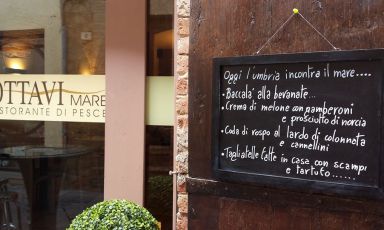 OTTAVI MARE
RISTORANTE DI PESCE
Oggi l'umbria incontra il mare....
• Baccala' alla bevanate...
• Crema di melone con gamberoni
e prosciutto di norcia
• Coda di rospo al lardo di colonneta
e cannellini
• Tagliatelle fatte in casa con scampi
e tartufo.....